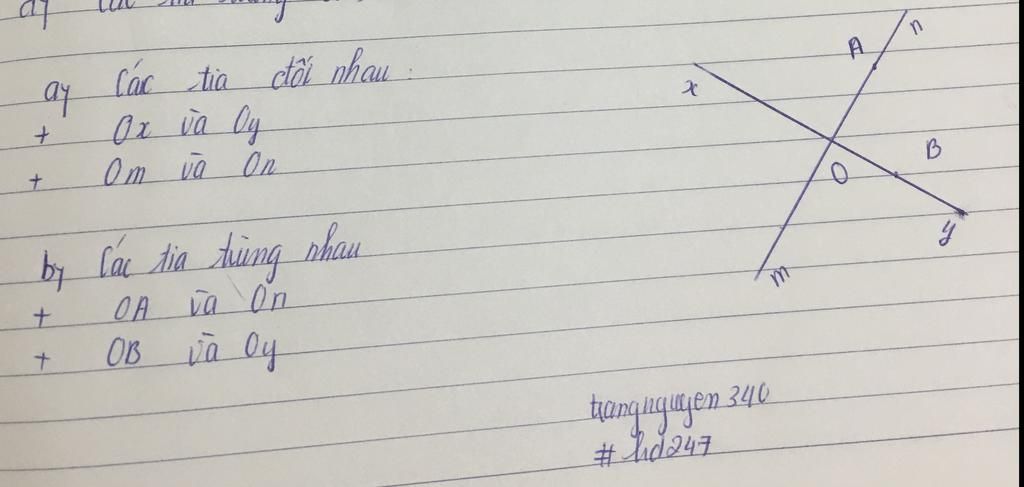 a, Các tia đối nhau:
+ Ox và Oy
+ Om và On
b, Các tia trùng nhau
+ OA và On
+ OB và Oy
n
A
x
B
O
y
m
trangnguyen 340
# hd247